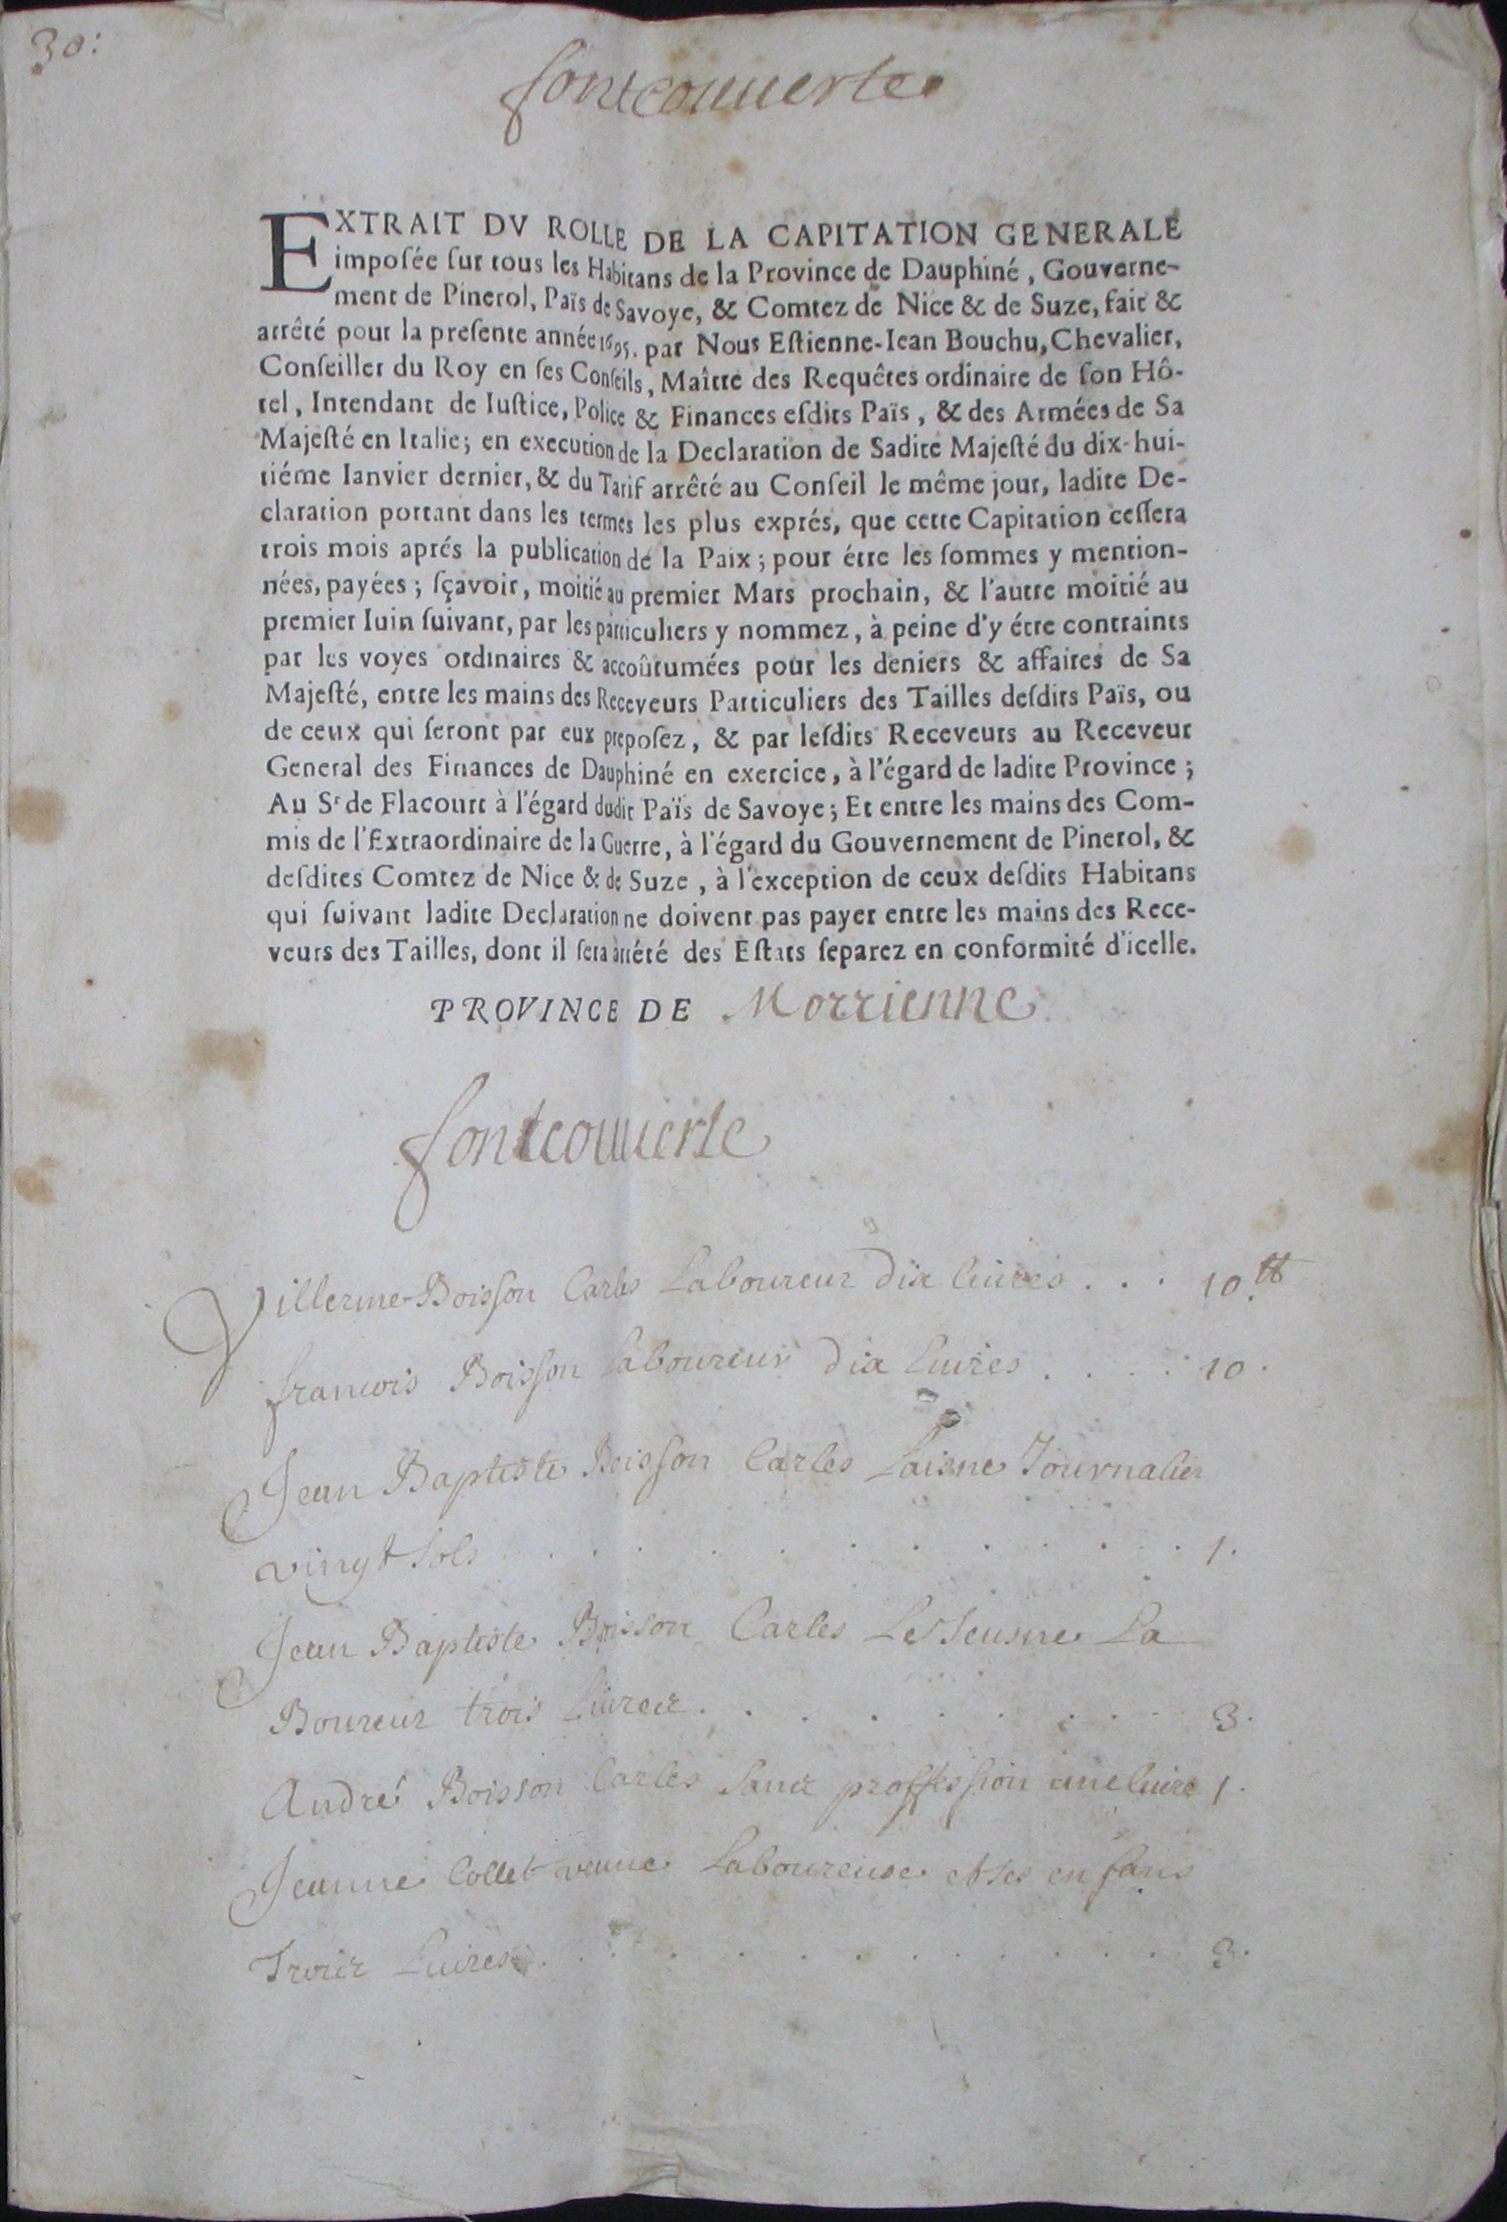 30:
fontcouuerte
EXTRAIT DV ROLLE DE LA CAPITATION GENERALE
imposée sur tous les Habitans de la Province de Dauphiné, Gouverne-
ment de Pinerol, Païs de Savoye, & Comtez de Nice & de Suze, fait &
arrêté pour la presente année 1695. par Nous Estienne-Iean Bouchu, Chevalier,
Conseiller du Roy en ses Conseils, Maître des Requêtes ordinaire de son Hô-
tel, Intendant de Iustice, Police & Finances esdits Païs, & des Armées de Sa
Majesté en Italie; en execution de la Declaration de Sadite Majesté du dix-hui-
tiéme Ianvier dernier, & du Tarif arrêté au Conseil le même jour, ladite De-
claration portant dans les termes les plus exprés, que cette Capitation cessera
trois mois aprés la publication de la Paix; pour étre les sommes y mention-
nées, payées; sçavoir, moitié au premier Mars prochain, & l'autre moitié au
premier Iuin suivant, par les particuliers y nommez, à peine d'y étre contraints
par les voyes ordinaires & accoûtumées pour les deniers & affaires de Sa
Majesté, entre les mains des Receveurs Particuliers des Tailles desdits Païs, ou
de ceux qui seront par eux preposez, & par lesdits Receveurs au Receveur
General des Finances de Dauphiné en exercice, à l'égard de ladite Province;
Au Sr de Flacourt à l'égard dudit Païs de Savoye; Et entre les mains des Com-
mis de l'Extraordinaire de la Guerre, à l'égard du Gouvernement de Pinerol, &
desdites Comtez de Nice & de Suze, à l'exception de ceux desdits Habitans
qui suivant ladite Declaration ne doivent pas payer entre les mains des Rece-
veurs des Tailles, dont il sera arrété des Estats separez en conformité d'icelle.
PROVINCE DE Morrienne
fontcouuerte
Villerme Boisson Carles Laboureur dix liures . . . 10.tt
francois Boisson laboureur dix liures . . . . 10.
Jean Baptiste Boisson Carles Laisne Journalier
vingt sols . . . . . . . . . . 1.
Jean Baptiste Boisson Carles Le Jeusne La
Boureur trois liures . . . . . . . . 3.
André Boisson Carles sans proffession une liure 1.
Jeanne Collet veuue Laboureuse et ses enfans
Trois Liures . . . . . . . . . . 3.